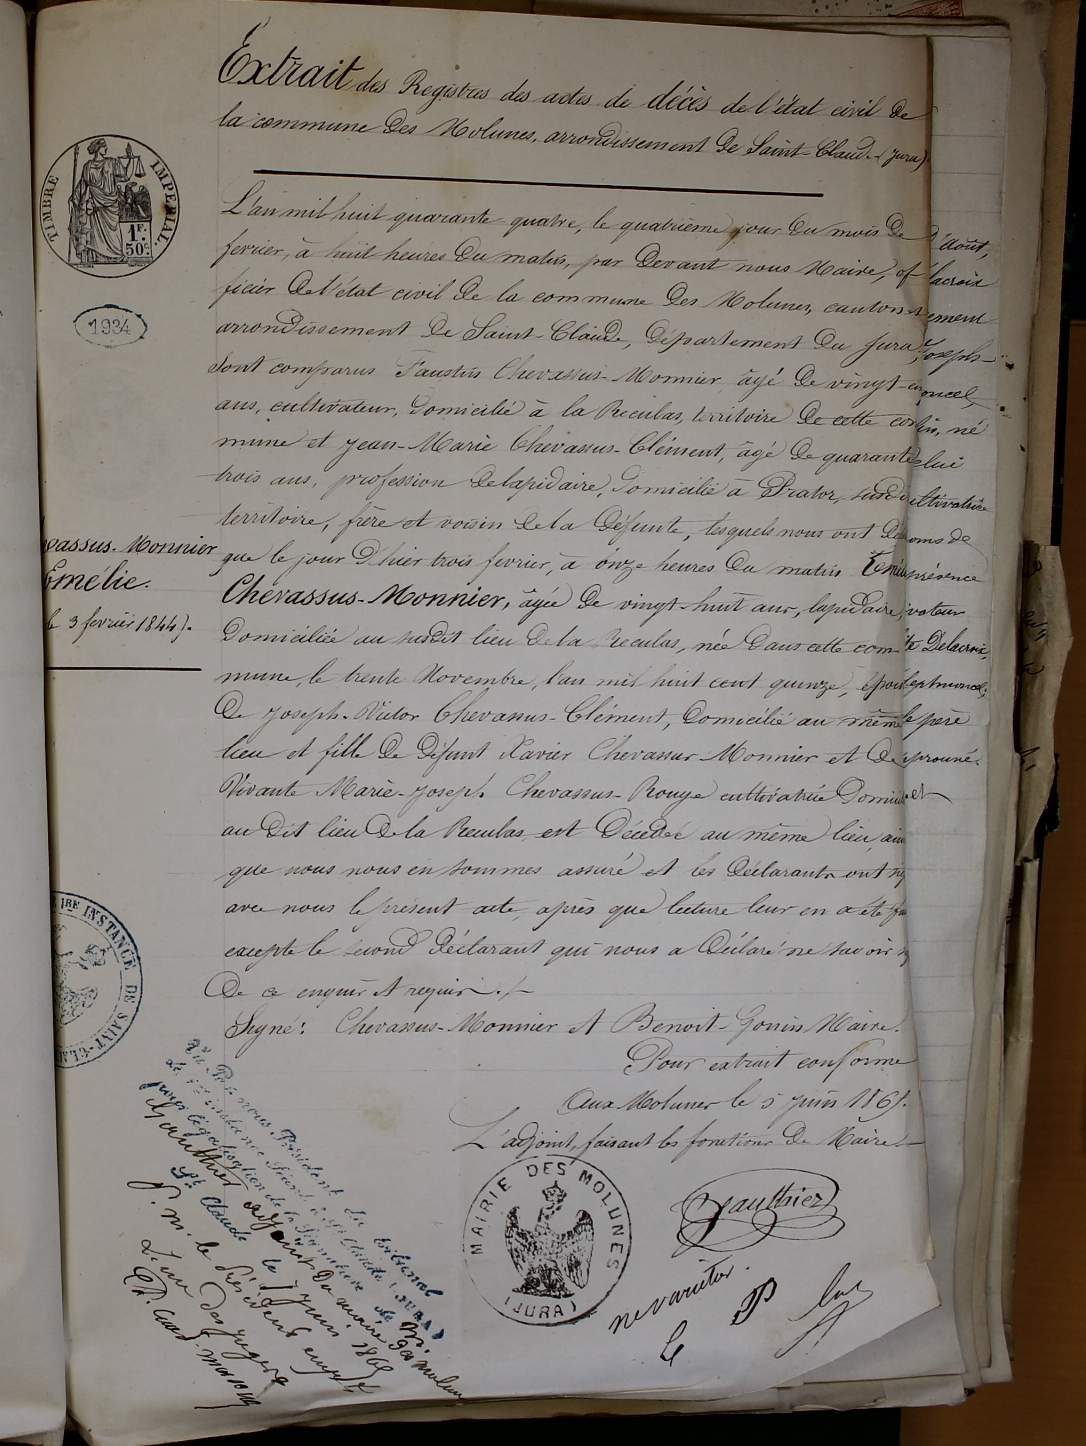 Extrait des Registres des actes de décès de l'état civil de
la commune des Molunes, arrondissement de Saint-Claude (Jura)
TIMBRE IMPERIAL.
1F.
50c.
1934
L'an mil huit quarante quatre, le quatrième jour du mois de
fevrier, à huit heures du matin, par devant nous Maire, of-
ficier de l'état civil de la commune des Molunes, canton et
arrondissement de Saint-Claude, département du Jura,
sont comparus Faustin Chevassus-Monnier, âgé de vingt-
ans, cultivateur, domicilié à la Reculas, territoire de cette com
mune et Jean-Marie Chevassus-Clément, âgé de quarante
trois ans, profession de lapidaire, domicilié à Prator, susdit
territoire, frère et voisin de la défunte, lesquels nous ont
que le jour d'hier trois fevrier, à onze heures du matin
Chevassus-Monnier, âgée de vingt-huit ans, lapidaire,
domiciliée au susdit lieu de la Reculas, née dans cette com-
mune, le trente Novembre, l'an mil huit cent quinze, épouse
de Joseph-Victor Chevassus-Clément, domicilié au même
lieu et fille de défunt Xavier Chevassus-Monnier et de
vivante Marie-Joseph Chevassus-Rouge cultivatrice
au dit lieu de la Reculas, est décédée au même lieu,
que nous nous en sommes assuré et les déclarants ont
avec nous le présent acte, après que lecture leur en a été
excepté le second déclarant qui nous a déclaré ne savoir
de ce enquis et requis ./.
Signé: Chevassus-Monnier et Benoit-Gonin Maire.
Pour extrait conforme
Aux Molunes le 5 juin 1869.
L'adjoint, faisant les fonctions de Maire.
Gauthier
MAIRIE DES MOLUNES
(JURA)
ne varietur
assus-Monnier
Emélie.
3 fevrier 1844).
1RE INSTANCE DE SAINT-CLAU
Vu Par nous Président du tribunal
de 1re instance séant à St Claude (JURA)
pour légalisation de la Signature de M.
Gauthier adjoint du maire des molunes
St Claude le 7 juin 1869
P. m. le Président empêché
L'un des juges
d'août,
lacroix
Joseph-
né
lui
cultivatrice
présence
Delacroix,
père
et